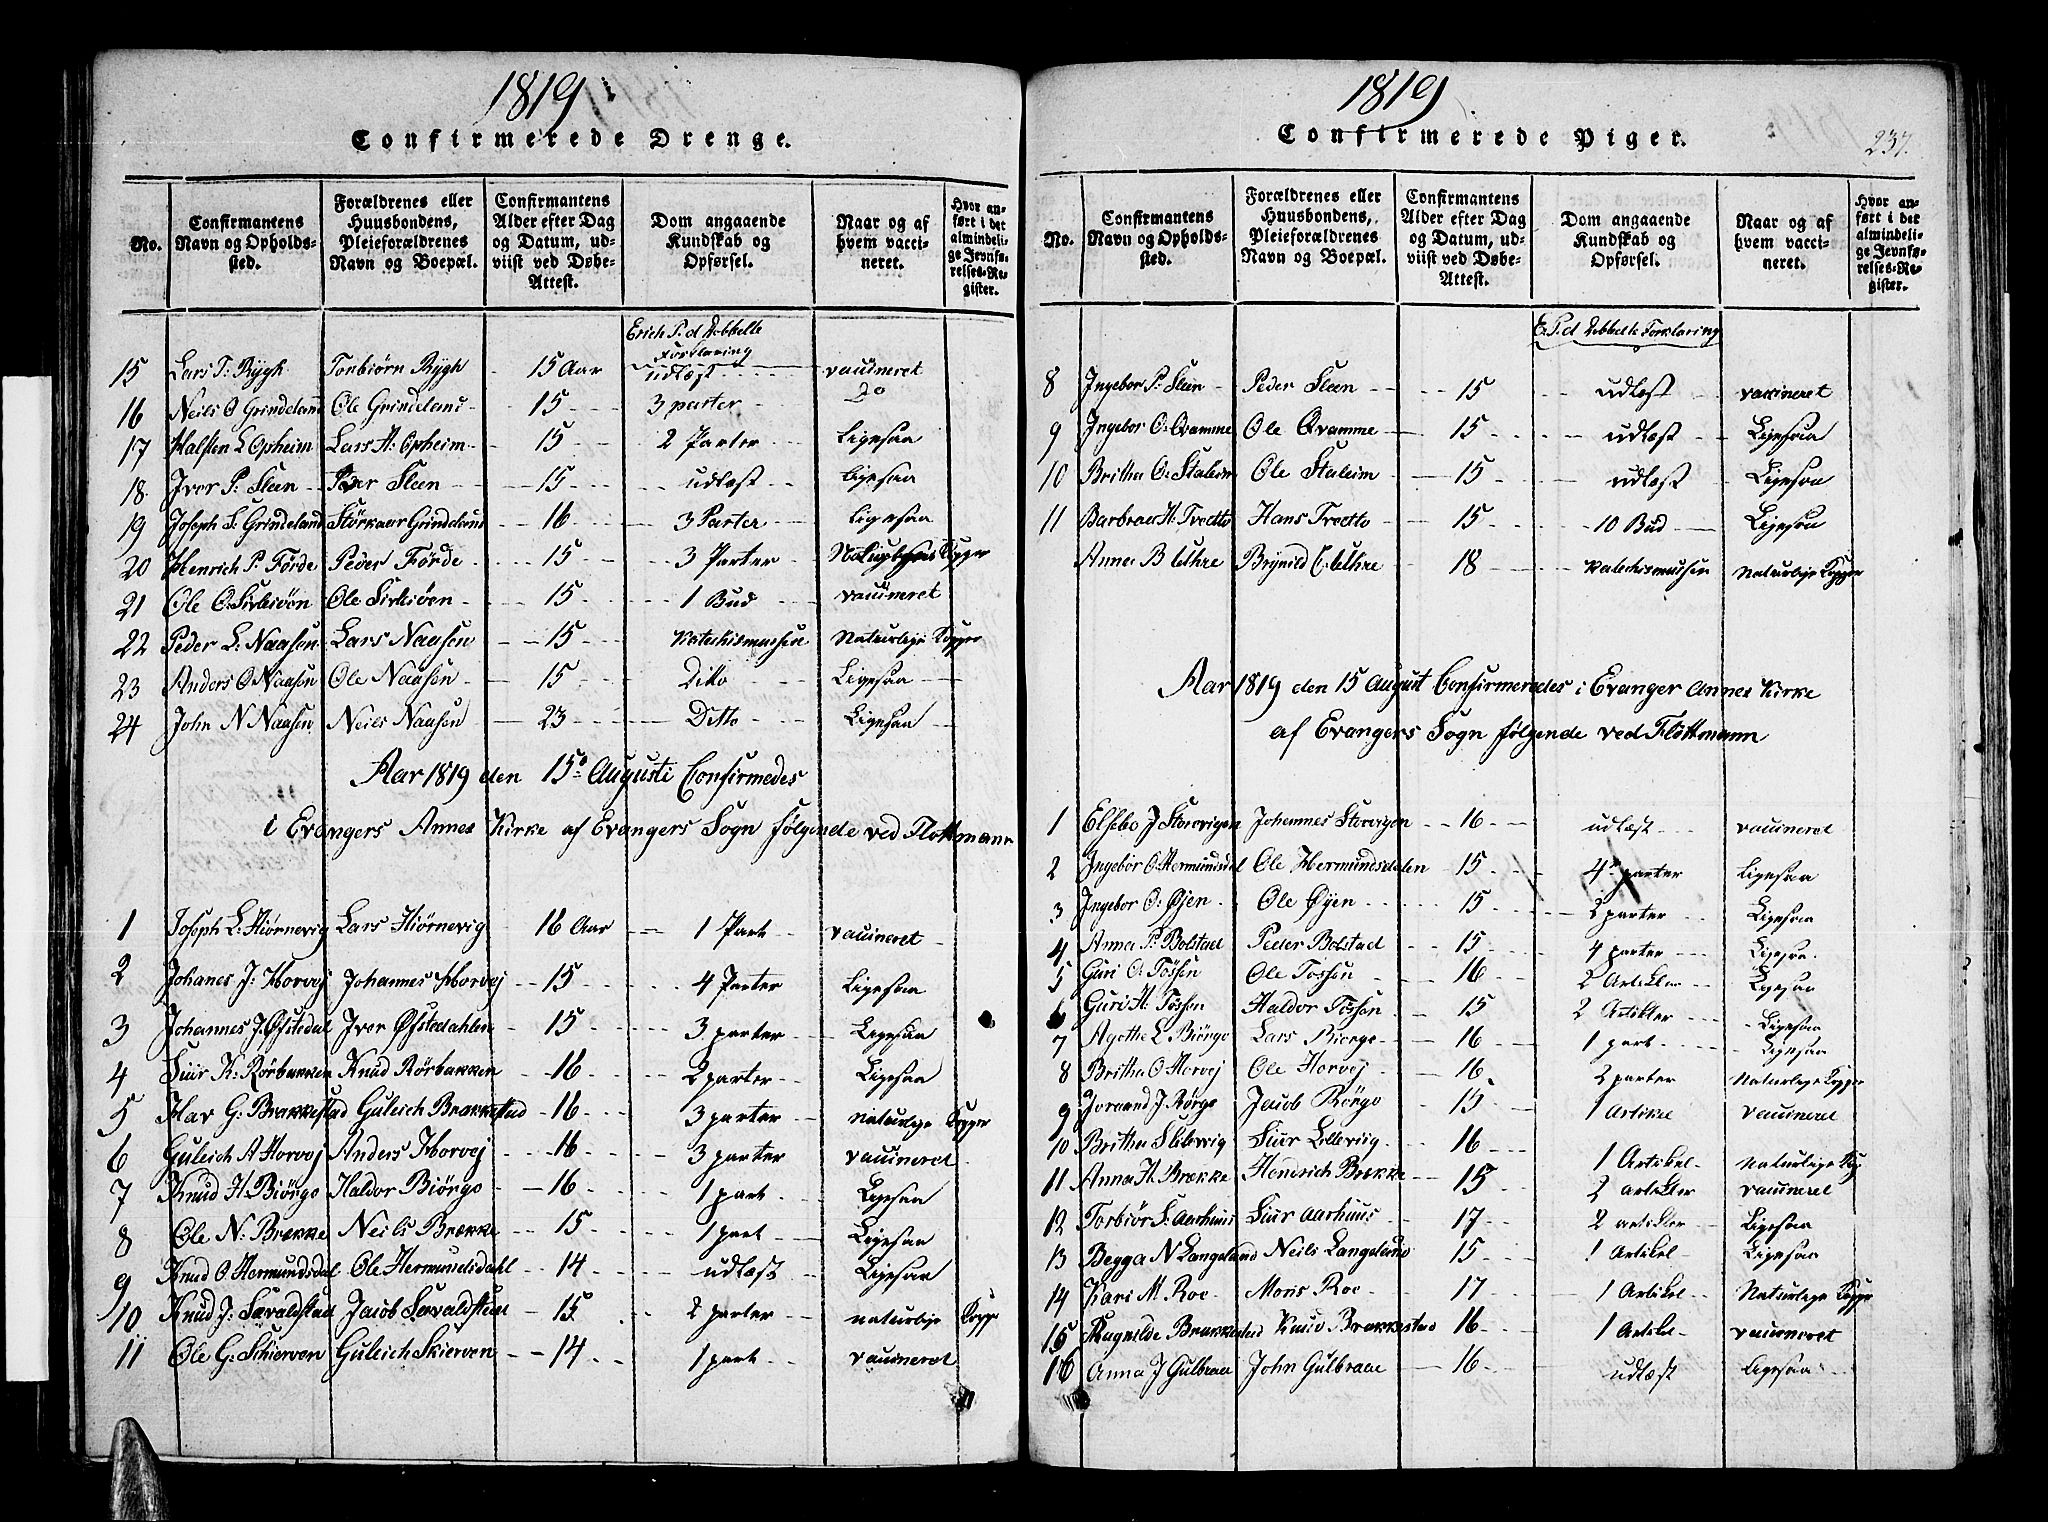 1819
Confirmerede Drenge.
No.
Confirmantens Navn og Opholds-sted.
Forældrenes eller Huusbondens, Pleieforældrenes Navn og Boepæl.
Confirmantens Alder efter Dag og Datum, ud-viist ved Døbe-Attest.
Dom angaaende Kundskab og Opførsel.
Naar og af hvem vacci-neret.
Hvor an-ført i det almindeli-ge Jevnfø-relses-Re-gister.
Erich P.d Dobbelte Forklaring
15 Lars T: Rygh Torbiörn Rygh 15 Aar udlæst vaccineret
16 Neils O Grindeland Ole Grindeland 15 3 parter Do
17 Halsten L Opheim Lars H: Opheim 15 2 Parter Ligesaa
18. Iver P: Sleen Peder Sleen 15 udlæst Ligesaa
19 Joseph S: Grindeland Störkaar Grindeland 16 3 Parter Ligesaa
20 Henrich P. Förde Peder Förde 15 3 Parter Kopper
21 Ole O: Ole 15 1 Bud vaccineret
22 Peder L: Naasen Lars Naasen 15 Katechismussen Naturlige Kopper
23 Anders O Naasen Ole Naasen 15 Ditto Ligesaa
24 John N Naasen Neils Naasen 23 Ditto Ligesaa
Aar 1819 den 15de Augusti Confirmedes
i Evangers Annex Kirke af Evangers Sogn følgende ved Flottmann
1 Joseph L: Hiörnevig Lars Hiörnevig 16 Aar 1 Part vaccineret
2 Johanes J: Horvej Johannes Horvej 15 4 Parter Ligesaa
3 Johannes J. Øfstedal Iver Øfstedahlen 15 3 parter Ligesaa
4 Siur K: Rörbakken Knud Rörbakken 16 2 parter Ligesaa
5 G: Brækkestad Guleich Brækkestad 16 3 parter Naturlige Kopper
6 Guleich A Horvej Anders Horvej 16 3 parter vaccineret
7 Knud H: Biörgo Haldor Biörgo 16 1 part Ligesaa
8 Ole N: Brække Neils Brække 15 1 part Ligesaa
9 Knud O. Hermundsdal Ole Hermundsdahl 14 udlæst Ligesaa
10 Knud J: Sævaldstad Jacob Sævaldstad 15 2 parter naturlige Kopp
11 Ole G: Schierven Guleich Skierven 14 1 part vaccineret
1819
Confirmerede Piger.
237.
No.
Confirmantens Navn og Opholds-sted.
Forældrenes eller Huusbondens, Pleieforældrenes Navn og Boepæl.
Confirmantens Alder efter Dag og Datum, ud-viist ved Døbe-Attest.
Dom angaaende Kundskab og Opførsel.
Naar og af hvem vacci-neret.
Hvor an-ført i det almindeli-ge Jevnfø-relses-Re-gister.
E. P.d Dobbelte Forklaring
8 Ingebor P: Sleen Peder Sleen 15 udlæst vaccineret
9 Ingebor O: Qvamme Ole Qvamme 15 udlæst Ligesaa
10 Britha O: Staleim Ole Staleim 15 udlæst Ligesaa
11 Barbraa H: Tvedto Hans Tvedto 15 10 Bud Ligesaa
Anna B Uthre Brynild Uthre 18 Katechismussen Naturlige Kopper
Aar 1819 den 15 August Confirmeredes i Evanger Annex Kirke
af Evangers Sogn følgende ved Flottmann
1 Elsebo J Storevigen Johannes Storvigen 16 udlæst vaccineret
2 Ingebor O: Hermunsdal Ole Hermundsdalen 15 4 parter Ligesaa
3 Ingebor O: Øjen Ole Øyen 15 2 parter Ligesaa
4 Anna P: Bolstad Peder Bolstad 15 4 parter Ligesaa
5 Guri O: Tössen Ole Tössen 16 2 Artikler Ligesaa
6 Guri H: Tössen Haldor Tössen 15 2 Artikler Ligesaa
7 Agothe L Biörgo Lars Biörgo 16 1 part Ligesaa
8 Britha O Horvej Ole Horvej 16 2 parter Naturlige Kopper
9 Jorand J Rörgo Jacob Rörgo 15 1 Artikel vaccineret
10 Britha S Lilevig Siur Lillevig 16 1 Artikel Naturlige Kop
11 Anna H. Brække Hendrich Brække 15 2 artikler vaccineret
12 Torbiör S: Aarhuus Siur Aarhuus 17 2 artikler Ligesaa
13 Begga N Langeland Neils Langeland 15 1 Artikel Ligesaa
14 Kari M Roe Mons Roe 17 1 Artikel Naturlige Kopper
15 Ragnilde Brækkestad Knud Brækkestad 16 1 Artikel vaccineret
16 Anna J Gulbraae John Gulbraae 16 udlæst Ligesaa